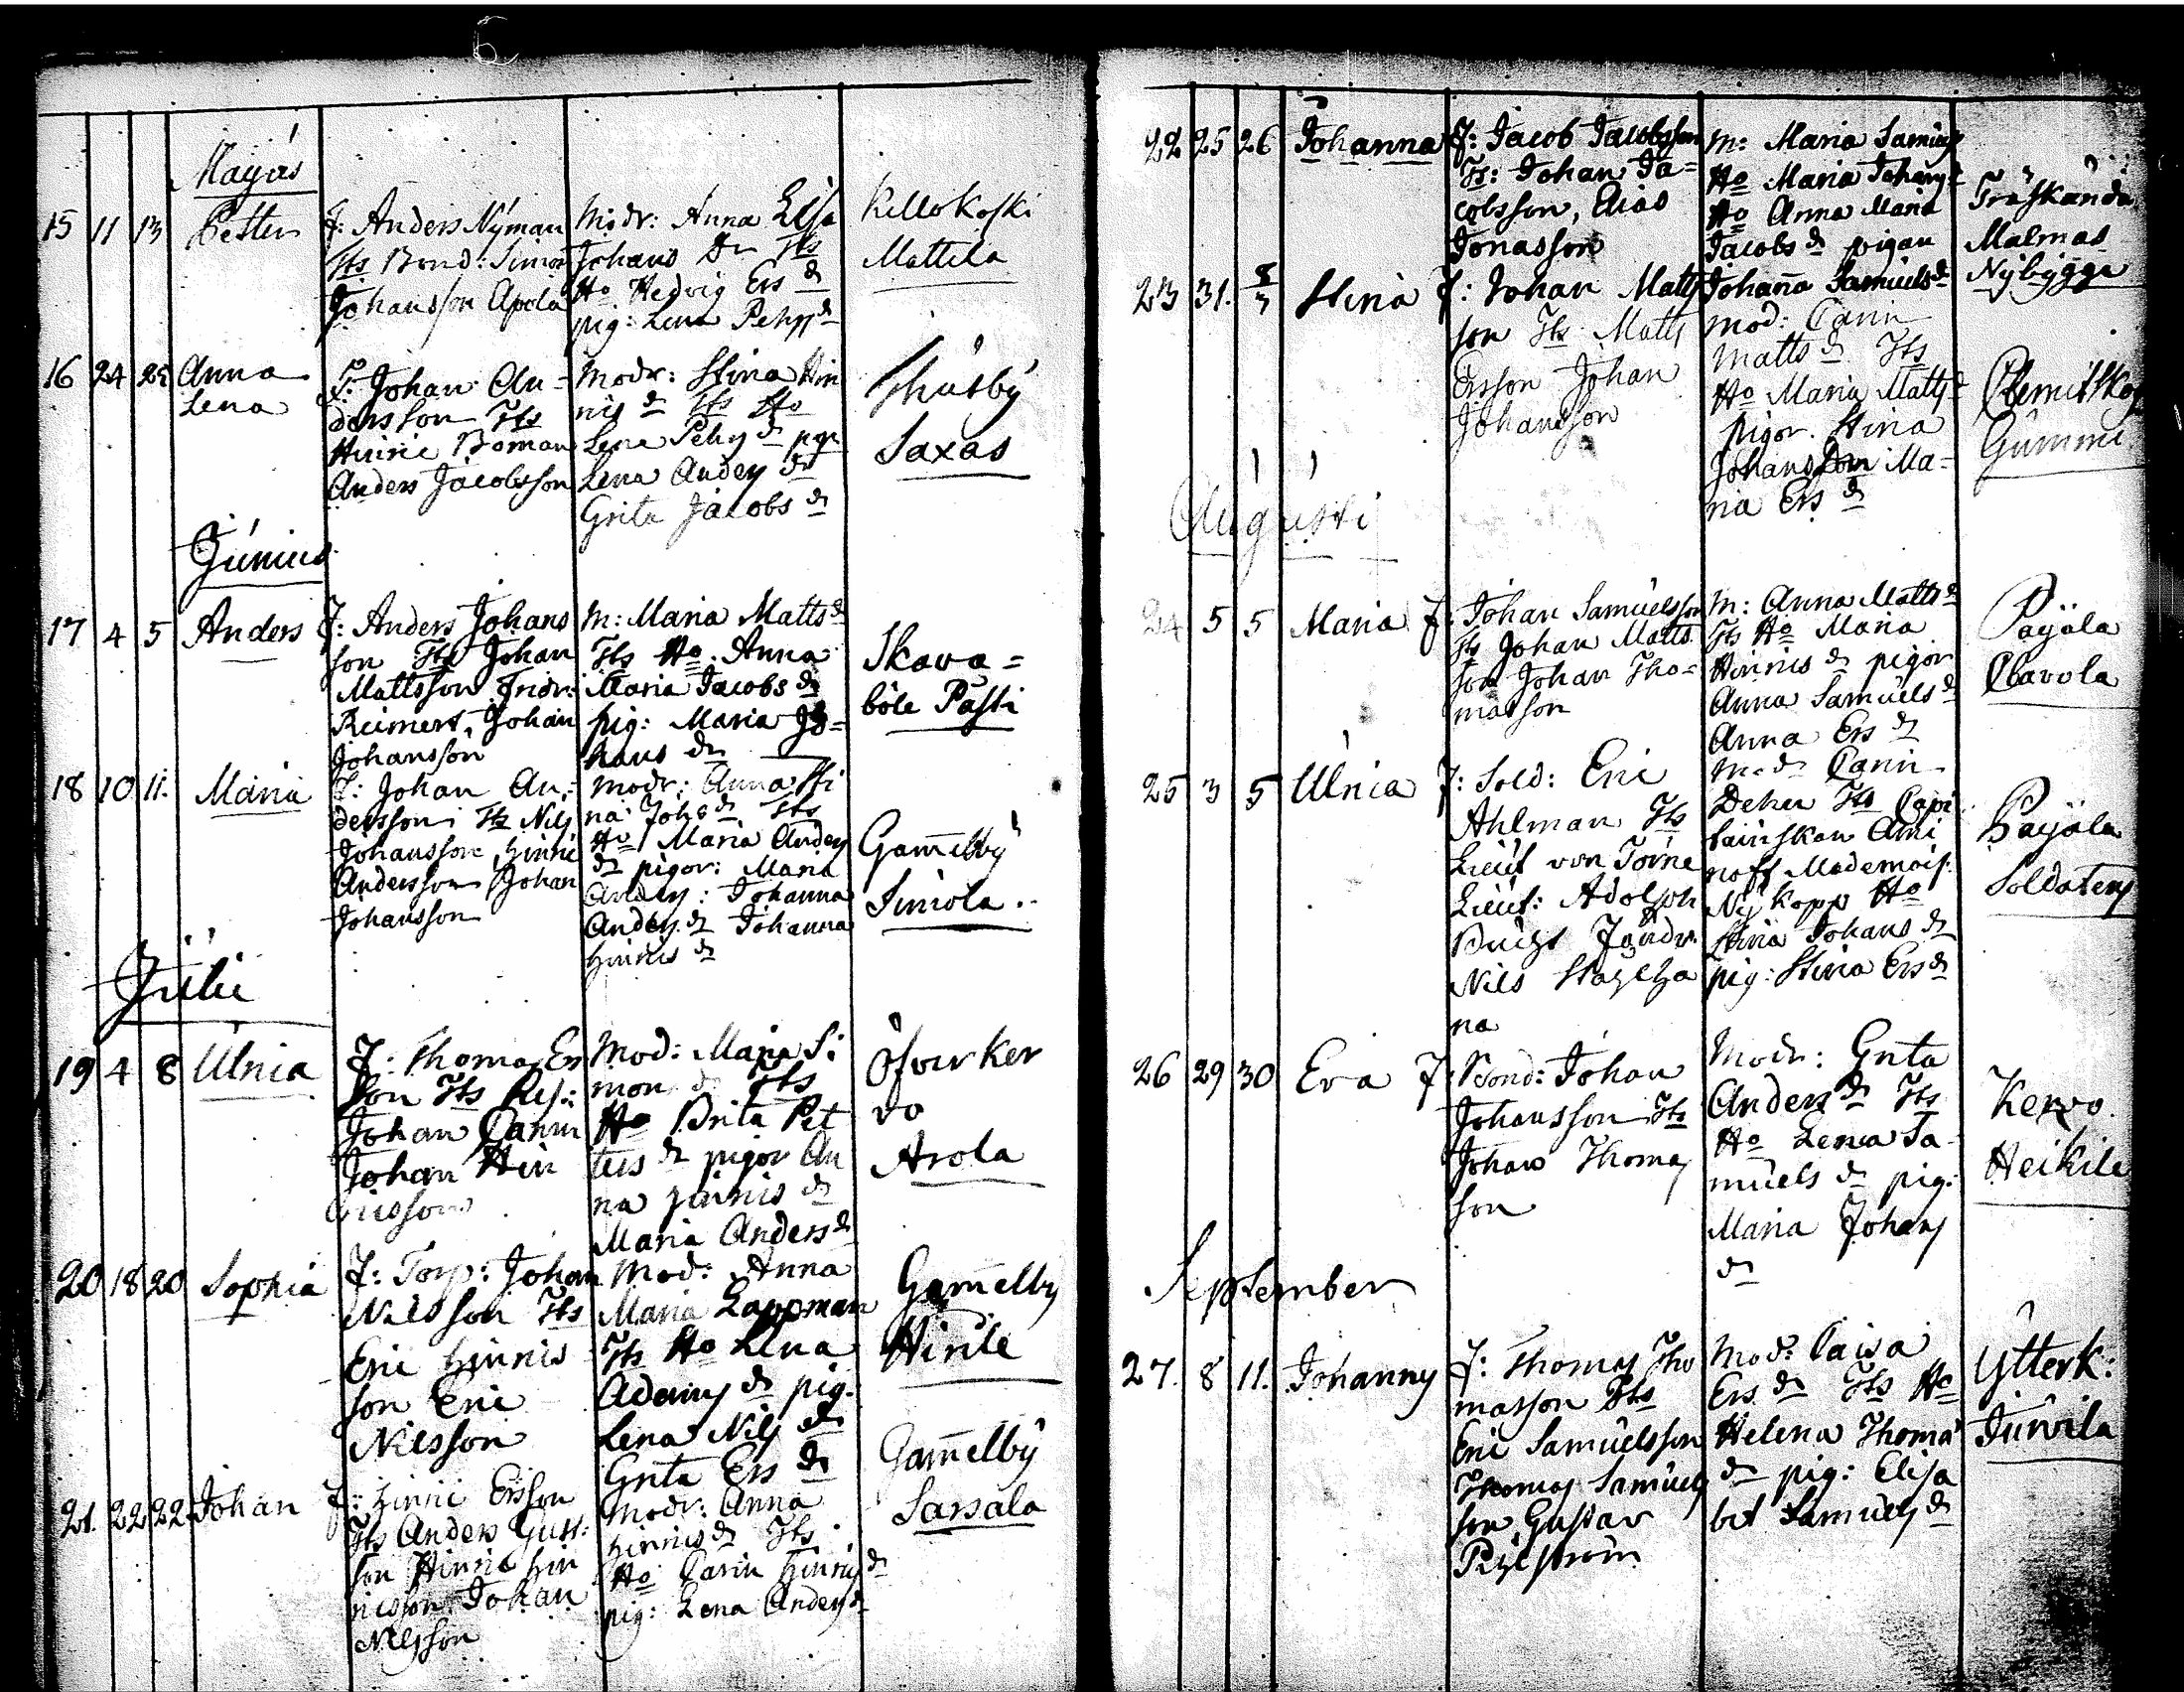 6
Majus
15 11 13 Petter
F: Anders Nÿman
Hs Bond: Simon
Johansson Apola
Modr: Anna Lisa
Johans Dr Hs
Ho Hedvig Ers dr
pig: Lena Pehrs dr
Kellokoski
Mattila
16 24 25 Anna
Lena
F: Johan An=
dersson Hs
Hinric Boman
Anders Jacobsson
Modr: Stina Hin
rics dr Hs Ho
Lena Pehrs dr pigr
Lena Anders dr
Grita Jacobs dr
Thusbÿ
Saxas
Junius
17 4 5 Anders
F: Anders Johans
son Hs Johan
Mattsson Fridr:
Reimers, Johan
Johansson
M: Maria Matts dr
Hs Ho Anna
Maria Jacobs dr
pig: Maria Jo=
hans dr
Skava=
böle Pasti
18 10 11. Maria
F: Johan An=
dersson Hs Nils
Johansson, Hinric
Andersson Johan
Johansson
Modr: Anna Sti
na Johs dr Hs
Ho Maria Anders
dr pigor: Maria
Anders: Johanna
Anders dr Johanna
Hinrics dr
Gamelbÿ
Simola
Julii
19 4 8 Ulrica
F: Thomas Ers
son Hs
Johan
Johan Hin
ricsson
Mod: Maja Si
mons dr Hs
Ho Brita Pet
ters dr pigor An
na Hinrics dr
Maria Anders dr
Öfverker
vo
Arola
20 18 20 Sophia
F: Torp: Johan
Nilsson Hs
Eric Hinrics
son Eric
Nilsson
Mod: Anna
Maria Lappman
Hs Ho Lena
Adams dr pig.
Lena Nils dr
Grita Ers dr
Gamelby
Hirile
21. 22 22 Johan
F: Hinric Ersson
Hs Anders Gust:
son Hinric Hin
ricsson Johan
Nilsson
Modr: Anna
Hinrics dr Hs
Ho Carin Hinrics dr
pig: Lena Anders dr
Gamelbÿ
Sarsala
22 25 26 Johanna
F: Jacob Jacobsson
Hs: Johan Ja=
cobsson, Elias
Jonasson
M: Maria Samuels
Ho Maria Johans dr
Ho Anna Maria
Jacobs dr pigan
Johana Samuels dr
Träskända
Malmas
Nÿbÿgge
23 31. Stina
F: Johan Matts
son Hs Matts
Ersson Johan
Johansson
Mod: Carin
Matts dr Hs
Ho Maria Matts dr
pigor. Stina
Johans Dr Ma=
ria Ers dr
Clemitskog
Gummi
Augusti
24 5 5 Maria
F: Johan Samuelsson
Hs Johan Matts
son Johan Tho=
masson
M: Anna Matts dr
Hs Ho Maria
Hinrics dr pigor
Anna Samuels dr
Anna Ers dr
Päjäla
Clavola
25 3 5 Ulrica
F: Sold: Eric
Ahlman Hs
Lieut von Törne
Lieut: Adolph
Jöudr.
Nils
na
Mod: Carin
Hs Capi
tainskan Ami
noff Mademois:
Nÿkopp Ho
Stina Johans dr
pig: Stina Ers dr
Päjäla
Soldatens
26 29 30 Eva
F: Bond: Johan
Johansson Hs
Johan Thomas
son
Modr: Grita
Anders dr Hs
Ho Lena Sa
muels dr pig:
Maria Johans
dr
Kervo
Heikile
September
27. 8 11. Johannes
F: Thomas Tho
masson Hs
Eric Samuelsson
Thomas Samuels
son, Gustav
Mod: Caisa
Ers dr Hs Ho
Helena Thomas
dr pig: Elisa
bet Samuels dr
Ytterk:
Jurvila